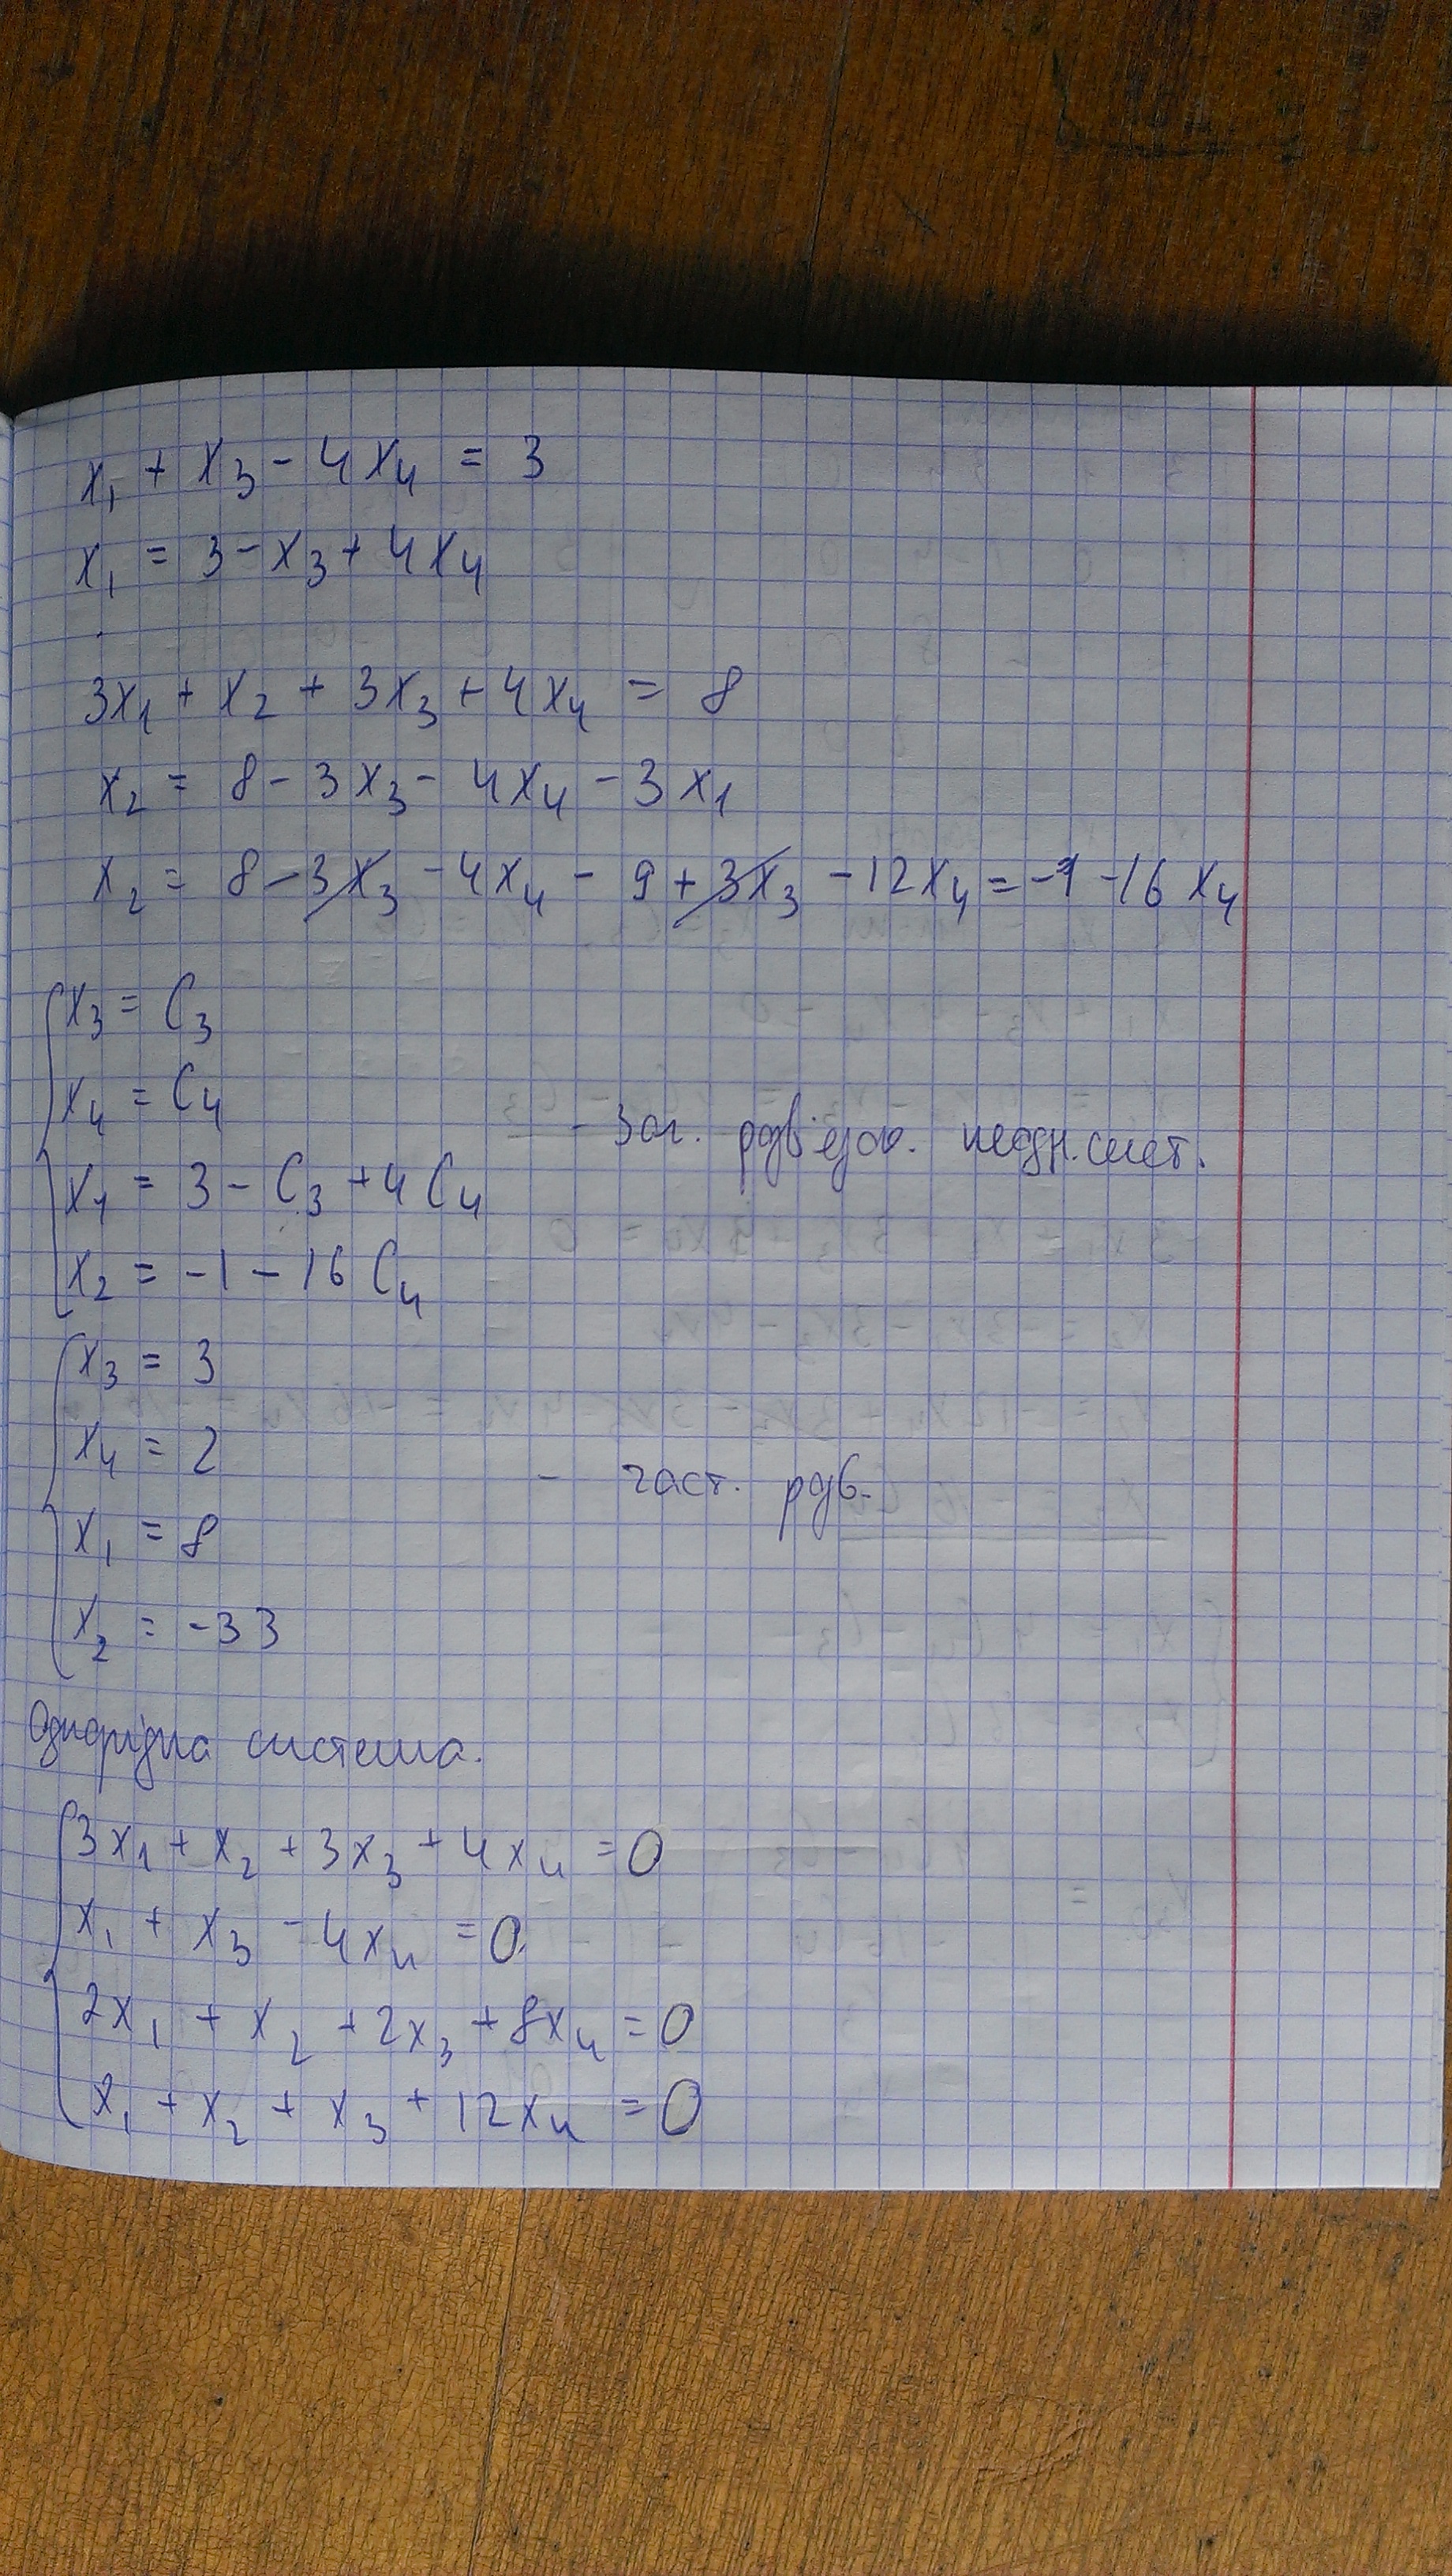 x₁ + x₃ - 4x₄ = 3
x₁ = 3 - x₃ + 4x₄
3x₁ + x₂ + 3x₃ + 4x₄ = 8
x₂ = 8 - 3x₃ - 4x₄ - 3x₁
x₂ = 8 - 3x₃ - 4x₄ - 9 + 3x₃ - 12x₄ = -1 - 16x₄
x₃ = C₃
x₄ = C₄
- Заг. розв'язок. неодн. сист.
x₁ = 3 - C₃ + 4C₄
x₂ = -1 - 16C₄
x₃ = 3
x₄ = 2
- част. розв.
x₁ = 8
x₂ = -33
Однорідна система.
3x₁ + x₂ + 3x₃ + 4x₄ = 0
x₁ + x₃ - 4x₄ = 0
2x₁ + x₂ + 2x₃ + 8x₄ = 0
x₁ + x₂ + x₃ + 12x₄ = 0